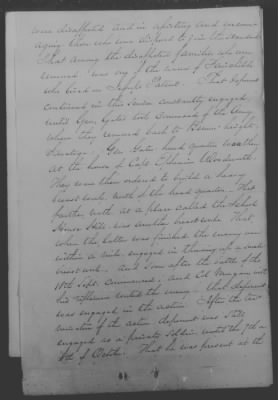 were disaffected and in assisting and encour
aging those who were disposed to join the standard
That among the disaffected families who were
removed was one of the name of Fairchild
who lived in Jessups Patent. That deponent
continued in this service constantly engaged
until Gen. Gates took command of the Army
when they removed back to Bemis height
Saratoga. Gen Gates head quarters was then
at the house of Capt Ephraim Woodworth.
They were then ordered to build a heavy
breast work north of the head quarters. That
further north at a place called the School
House Hill was another breast work. That
when the latter was finished the enemy were
within a mile engaged in throwing up a small
breast work. And soon after the battle of the
18th Sept. commenced, and Col Morgan with
his riflemen routed the enemy that deponent
was engaged in the action. After the ter
mination of the action deponent was still
engaged as a private soldier until the 7th or
8th of October. That he was present at the